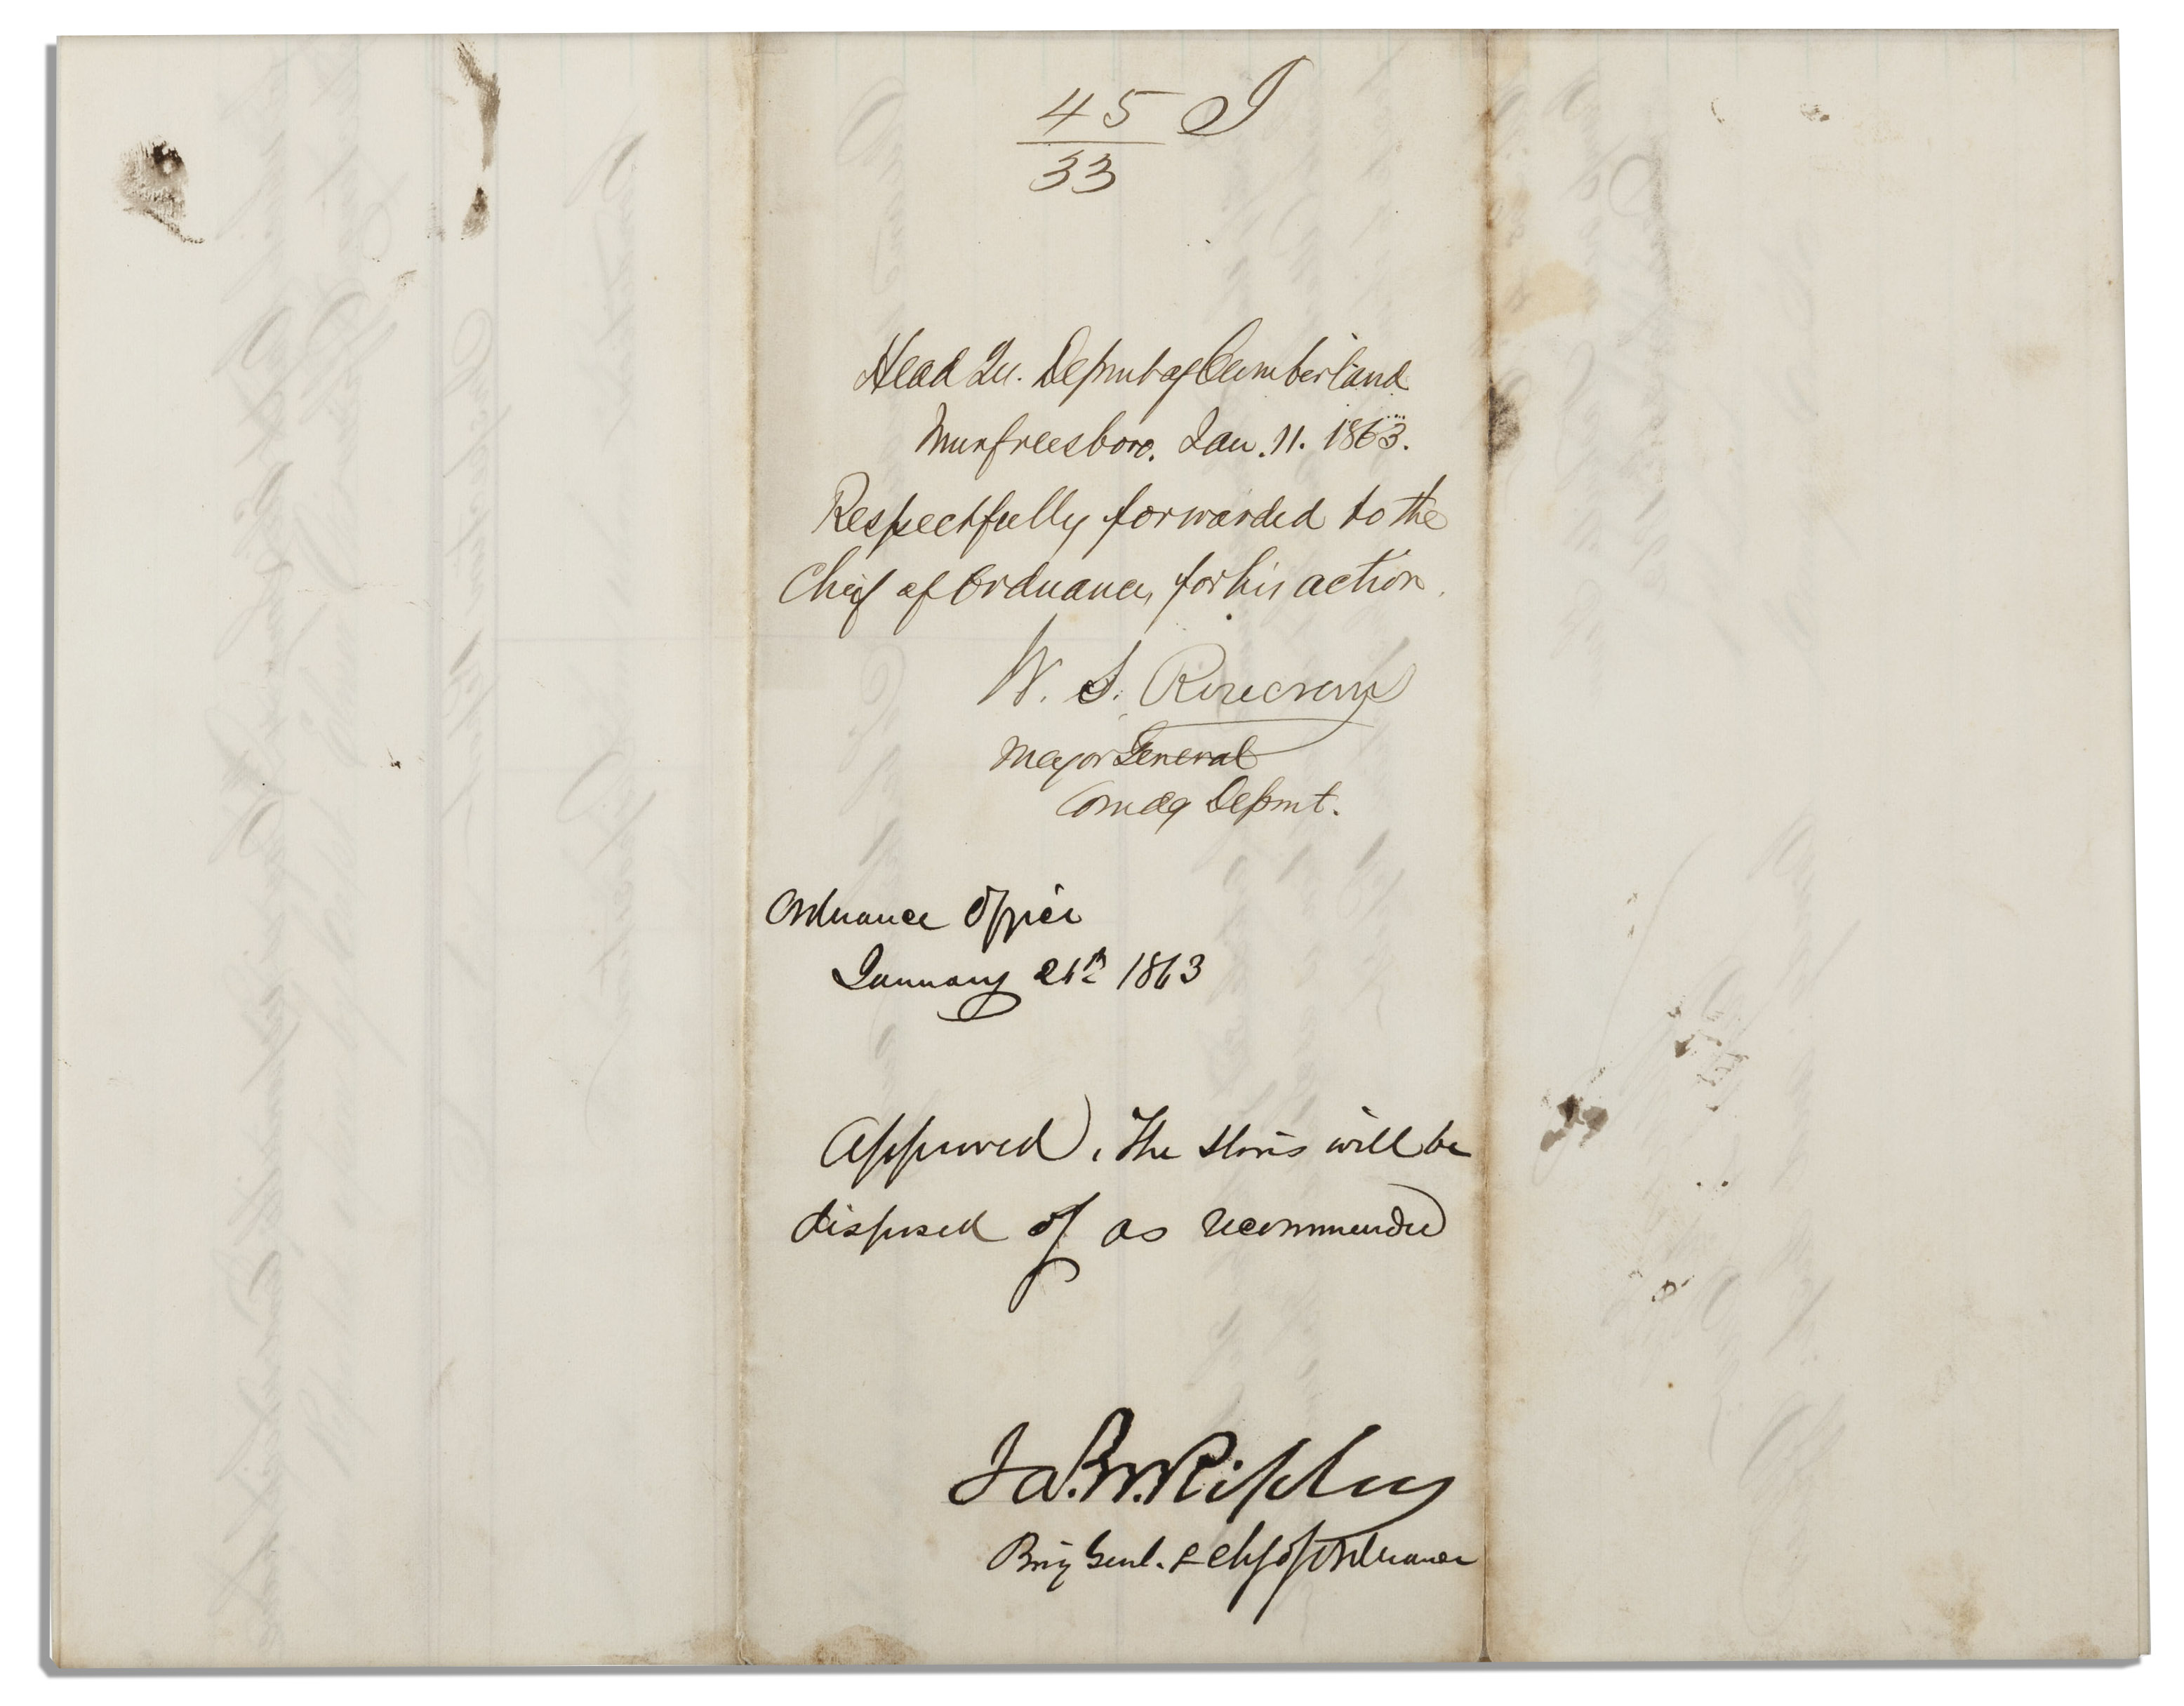 45 I
33
Head Qu. Depmt of Cumberland
Murfreesboro. Jan. 11. 1863.
Respectfully forwarded to the
Chief of Ordnance, for his action.
W. S. Rosecrans
Major General
Comdg Depmt.
Ordnance Office
January 1863
Approved. The stores will be
disposed of as recommended
Ja. W. Ripley
Brig Genl. & Chf of Ordnance